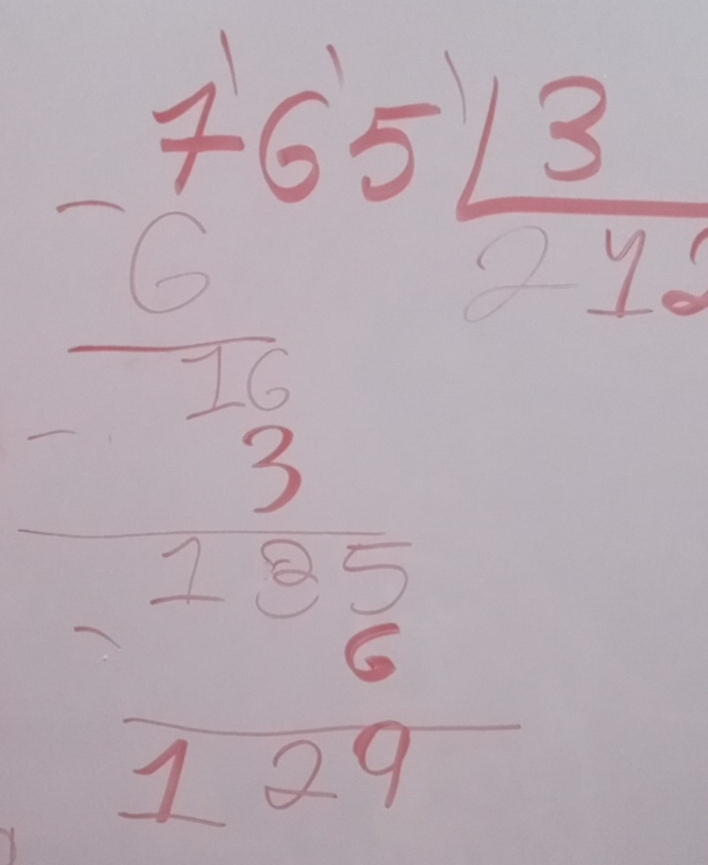 765 3
- 6 212
16
- 3
135
- 6
129